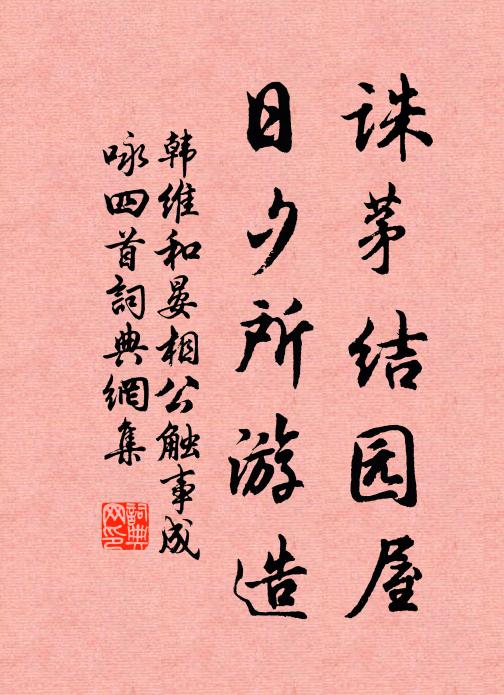 诛茅结园屋
日夕所游造
韩维和晏相公触事成
咏四首词典網集
詞典
网印